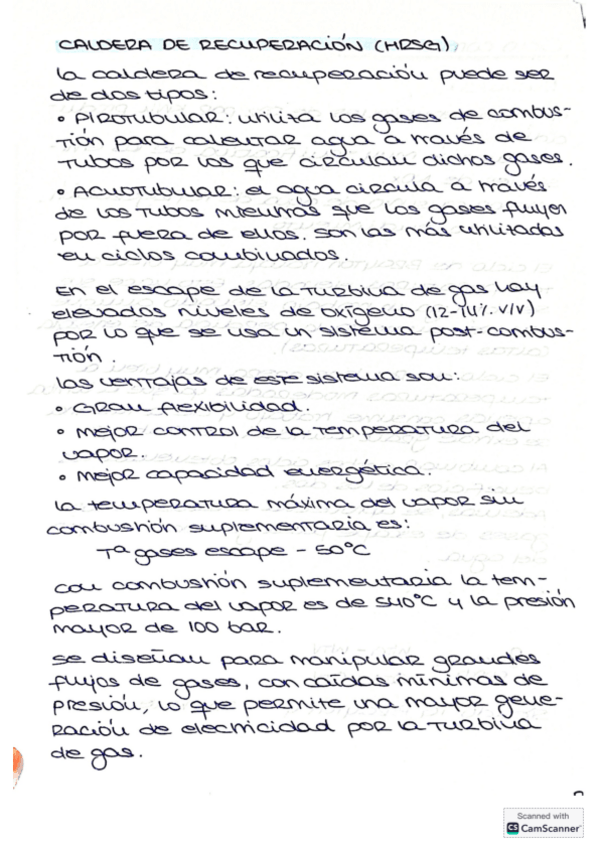 CALDERA DE RECUPERACIÓN (HRSG)
La caldera de recuperación puede ser
de dos tipos:
• PIROTUBULAR: utiliza los gases de combus-
tión para calentar agua a través de
tubos por los que circulan dichos gases.
• ACUOTUBULAR: el agua circula a través
de los tubos mientras que los gases fluyen
por fuera de ellos. Son las más utilizadas
en ciclos combinados.
En el escape de la turbina de gas hay
elevados niveles de oxígeno (12-14% v/v)
por lo que se usa un sistema post-combus-
tión.
Las ventajas de este sistema son:
• Gran flexibilidad.
• Mejor control de la temperatura del
vapor.
• Mejor capacidad energética.
La temperatura máxima del vapor sin
combustión suplementaria es:
Tª gases escape - 50°C
Con combustión suplementaria la tem-
peratura del vapor es de 540°C y la presión
mayor de 100 bar.
Se diseñan para manipular grandes
flujos de gases, con caídas mínimas de
presión, lo que permite una mayor gene-
ración de electricidad por la turbina
de gas.
Scanned with
CS CamScanner